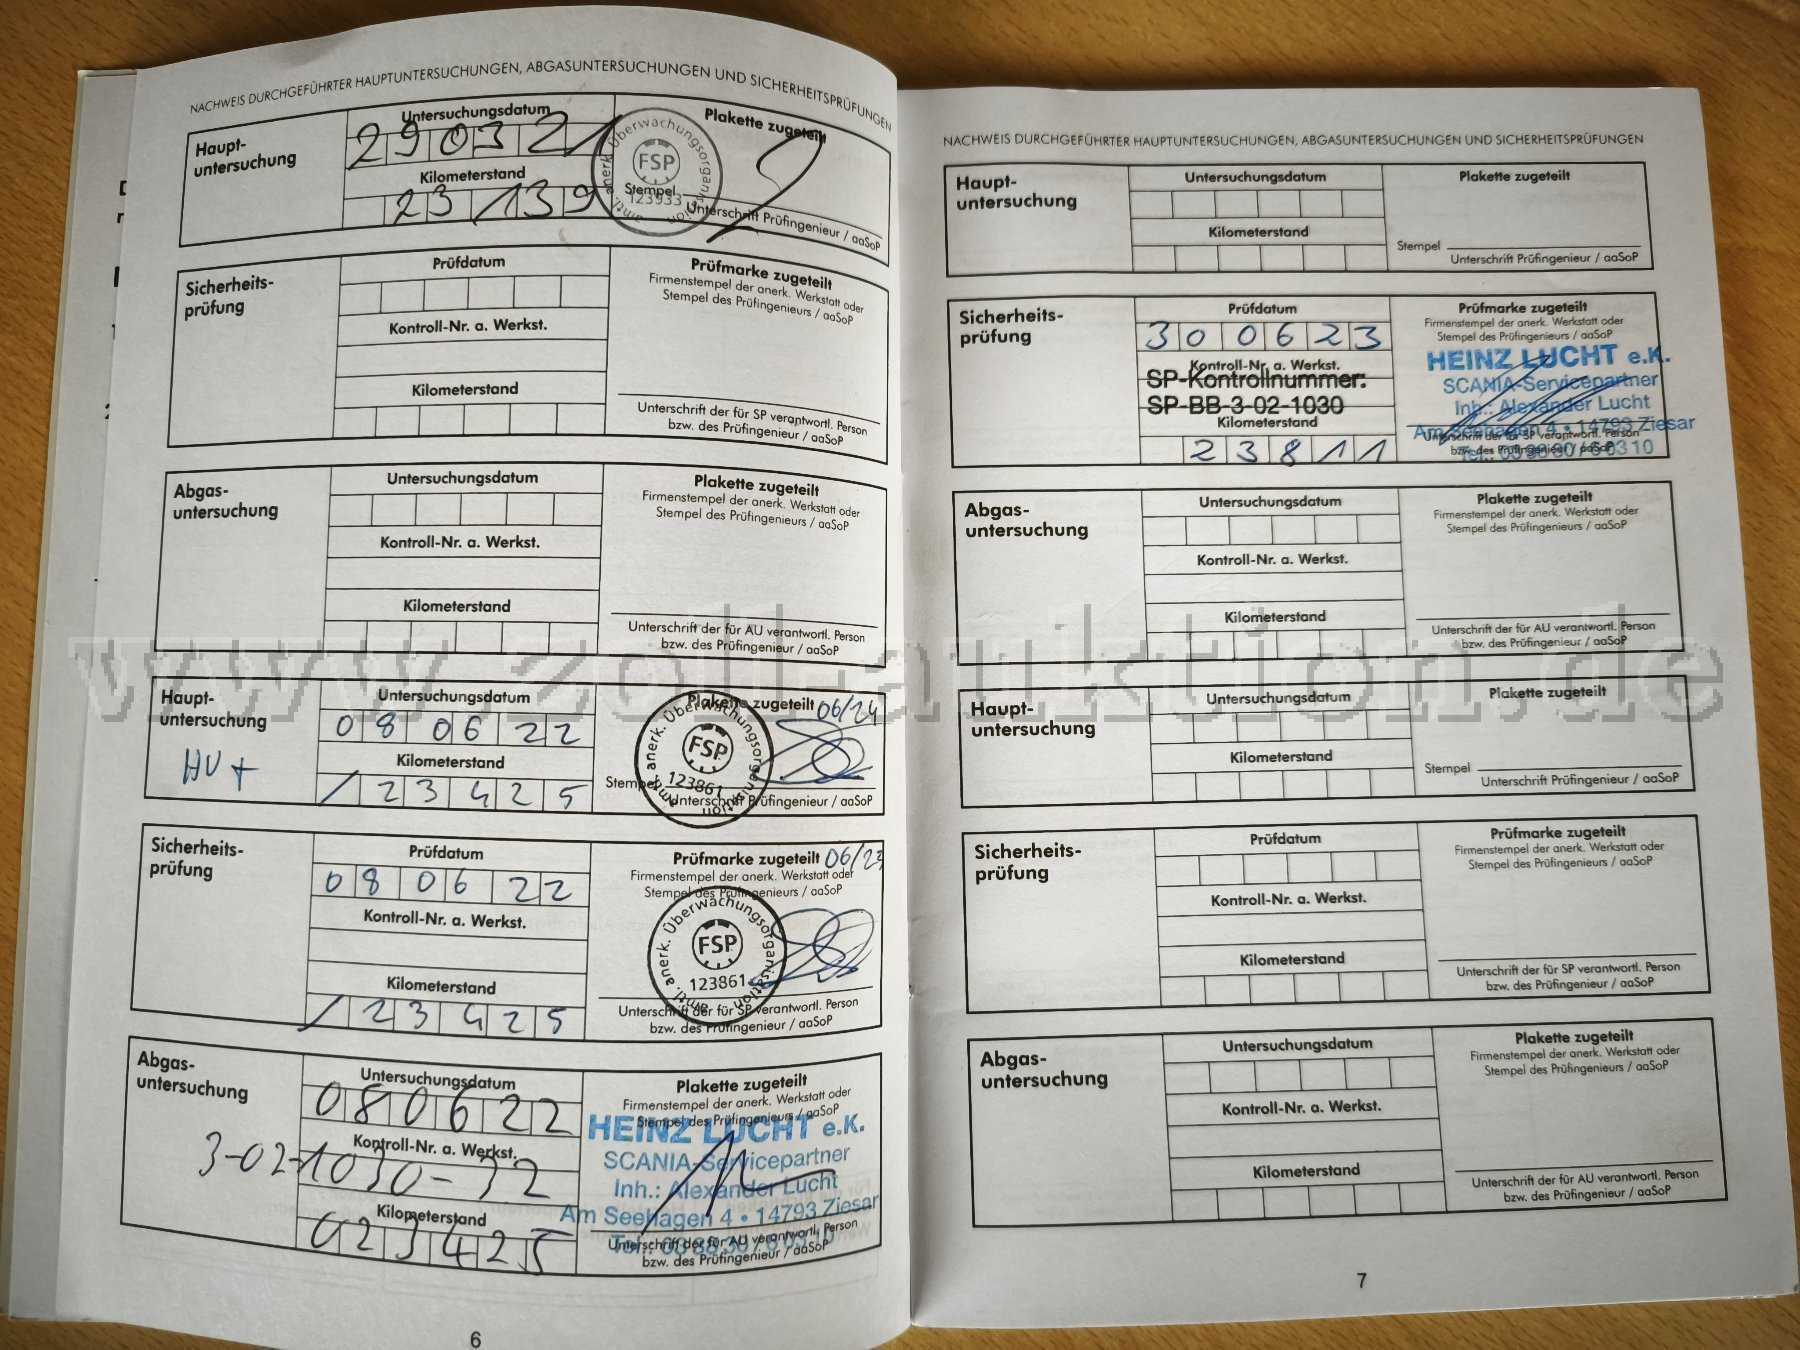 NACHWEIS DURCHGEFÜHRTER HAUPTUNTERSUCHUNGEN, ABGASUNTERSUCHUNGEN UND SICHERHEITSPRÜFUNGEN
Haupt-
untersuchung
Untersuchungsdatum
290321
Kilometerstand
23139
Plakette zugeteilt
amtl. anerk. Überwachungsorganisation
FSP
123933
Stempel
Unterschrift Prüfingenieur / aaSoP
Sicherheits-
prüfung
Prüfdatum
Kontroll-Nr. a. Werkst.
Kilometerstand
Prüfmarke zugeteilt
Firmenstempel der anerk. Werkstatt oder
Stempel des Prüfingenieurs / aaSoP
Unterschrift der für SP verantwortl. Person
bzw. des Prüfingenieur / aaSoP
Abgas-
untersuchung
Untersuchungsdatum
Kontroll-Nr. a. Werkst.
Kilometerstand
Plakette zugeteilt
Firmenstempel der anerk. Werkstatt oder
Stempel des Prüfingenieurs / aaSoP
Unterschrift der für AU verantwortl. Person
bzw. des Prüfingenieur / aaSoP
Haupt-
untersuchung
HU +
Untersuchungsdatum
080622
Kilometerstand
/23425
Plakette zugeteilt 06/24
amtl. anerk. Überwachungsorganisation
FSP
123861
Stempel
Unterschrift Prüfingenieur / aaSoP
Sicherheits-
prüfung
Prüfdatum
080622
Kontroll-Nr. a. Werkst.
Kilometerstand
/23425
Prüfmarke zugeteilt 06/23
Firmenstempel der anerk. Werkstatt oder
Stempel des Prüfingenieurs / aaSoP
amtl. anerk. Überwachungsorganisation
FSP
123861
Unterschrift der für SP verantwortl. Person
bzw. des Prüfingenieur / aaSoP
Abgas-
untersuchung
Untersuchungsdatum
080622
Kontroll-Nr. a. Werkst.
3-02-1030-32
Kilometerstand
023425
Plakette zugeteilt
Firmenstempel der anerk. Werkstatt oder
Stempel des Prüfingenieurs / aaSoP
HEINZ LUCHT e.K.
SCANIA-Servicepartner
Inh.: Alexander Lucht
Am Seehagen 4 • 14793 Ziesar
Unterschrift der für AU verantwortl. Person
bzw. des Prüfingenieur / aaSoP
6
NACHWEIS DURCHGEFÜHRTER HAUPTUNTERSUCHUNGEN, ABGASUNTERSUCHUNGEN UND SICHERHEITSPRÜFUNGEN
Haupt-
untersuchung
Untersuchungsdatum
Kilometerstand
Plakette zugeteilt
Stempel
Unterschrift Prüfingenieur / aaSoP
Sicherheits-
prüfung
Prüfdatum
300623
Kontroll-Nr. a. Werkst.
SP-Kontrollnummer:
SP-BB-3-02-1030
Kilometerstand
23811
Prüfmarke zugeteilt
Firmenstempel der anerk. Werkstatt oder
Stempel des Prüfingenieurs / aaSoP
HEINZ LUCHT e.K.
SCANIA-Servicepartner
Inh.: Alexander Lucht
Am Seehagen 4 • 14793 Ziesar
Unterschrift der für SP verantwortl. Person
bzw. des Prüfingenieur / aaSoP
Abgas-
untersuchung
Untersuchungsdatum
Kontroll-Nr. a. Werkst.
Kilometerstand
Plakette zugeteilt
Firmenstempel der anerk. Werkstatt oder
Stempel des Prüfingenieurs / aaSoP
Unterschrift der für AU verantwortl. Person
bzw. des Prüfingenieur / aaSoP
www.zoll-auktion.de
Haupt-
untersuchung
Untersuchungsdatum
Kilometerstand
Plakette zugeteilt
Stempel
Unterschrift Prüfingenieur / aaSoP
Sicherheits-
prüfung
Prüfdatum
Kontroll-Nr. a. Werkst.
Kilometerstand
Prüfmarke zugeteilt
Firmenstempel der anerk. Werkstatt oder
Stempel des Prüfingenieurs / aaSoP
Unterschrift der für SP verantwortl. Person
bzw. des Prüfingenieur / aaSoP
Abgas-
untersuchung
Untersuchungsdatum
Kontroll-Nr. a. Werkst.
Kilometerstand
Plakette zugeteilt
Firmenstempel der anerk. Werkstatt oder
Stempel des Prüfingenieurs / aaSoP
Unterschrift der für AU verantwortl. Person
bzw. des Prüfingenieur / aaSoP
7